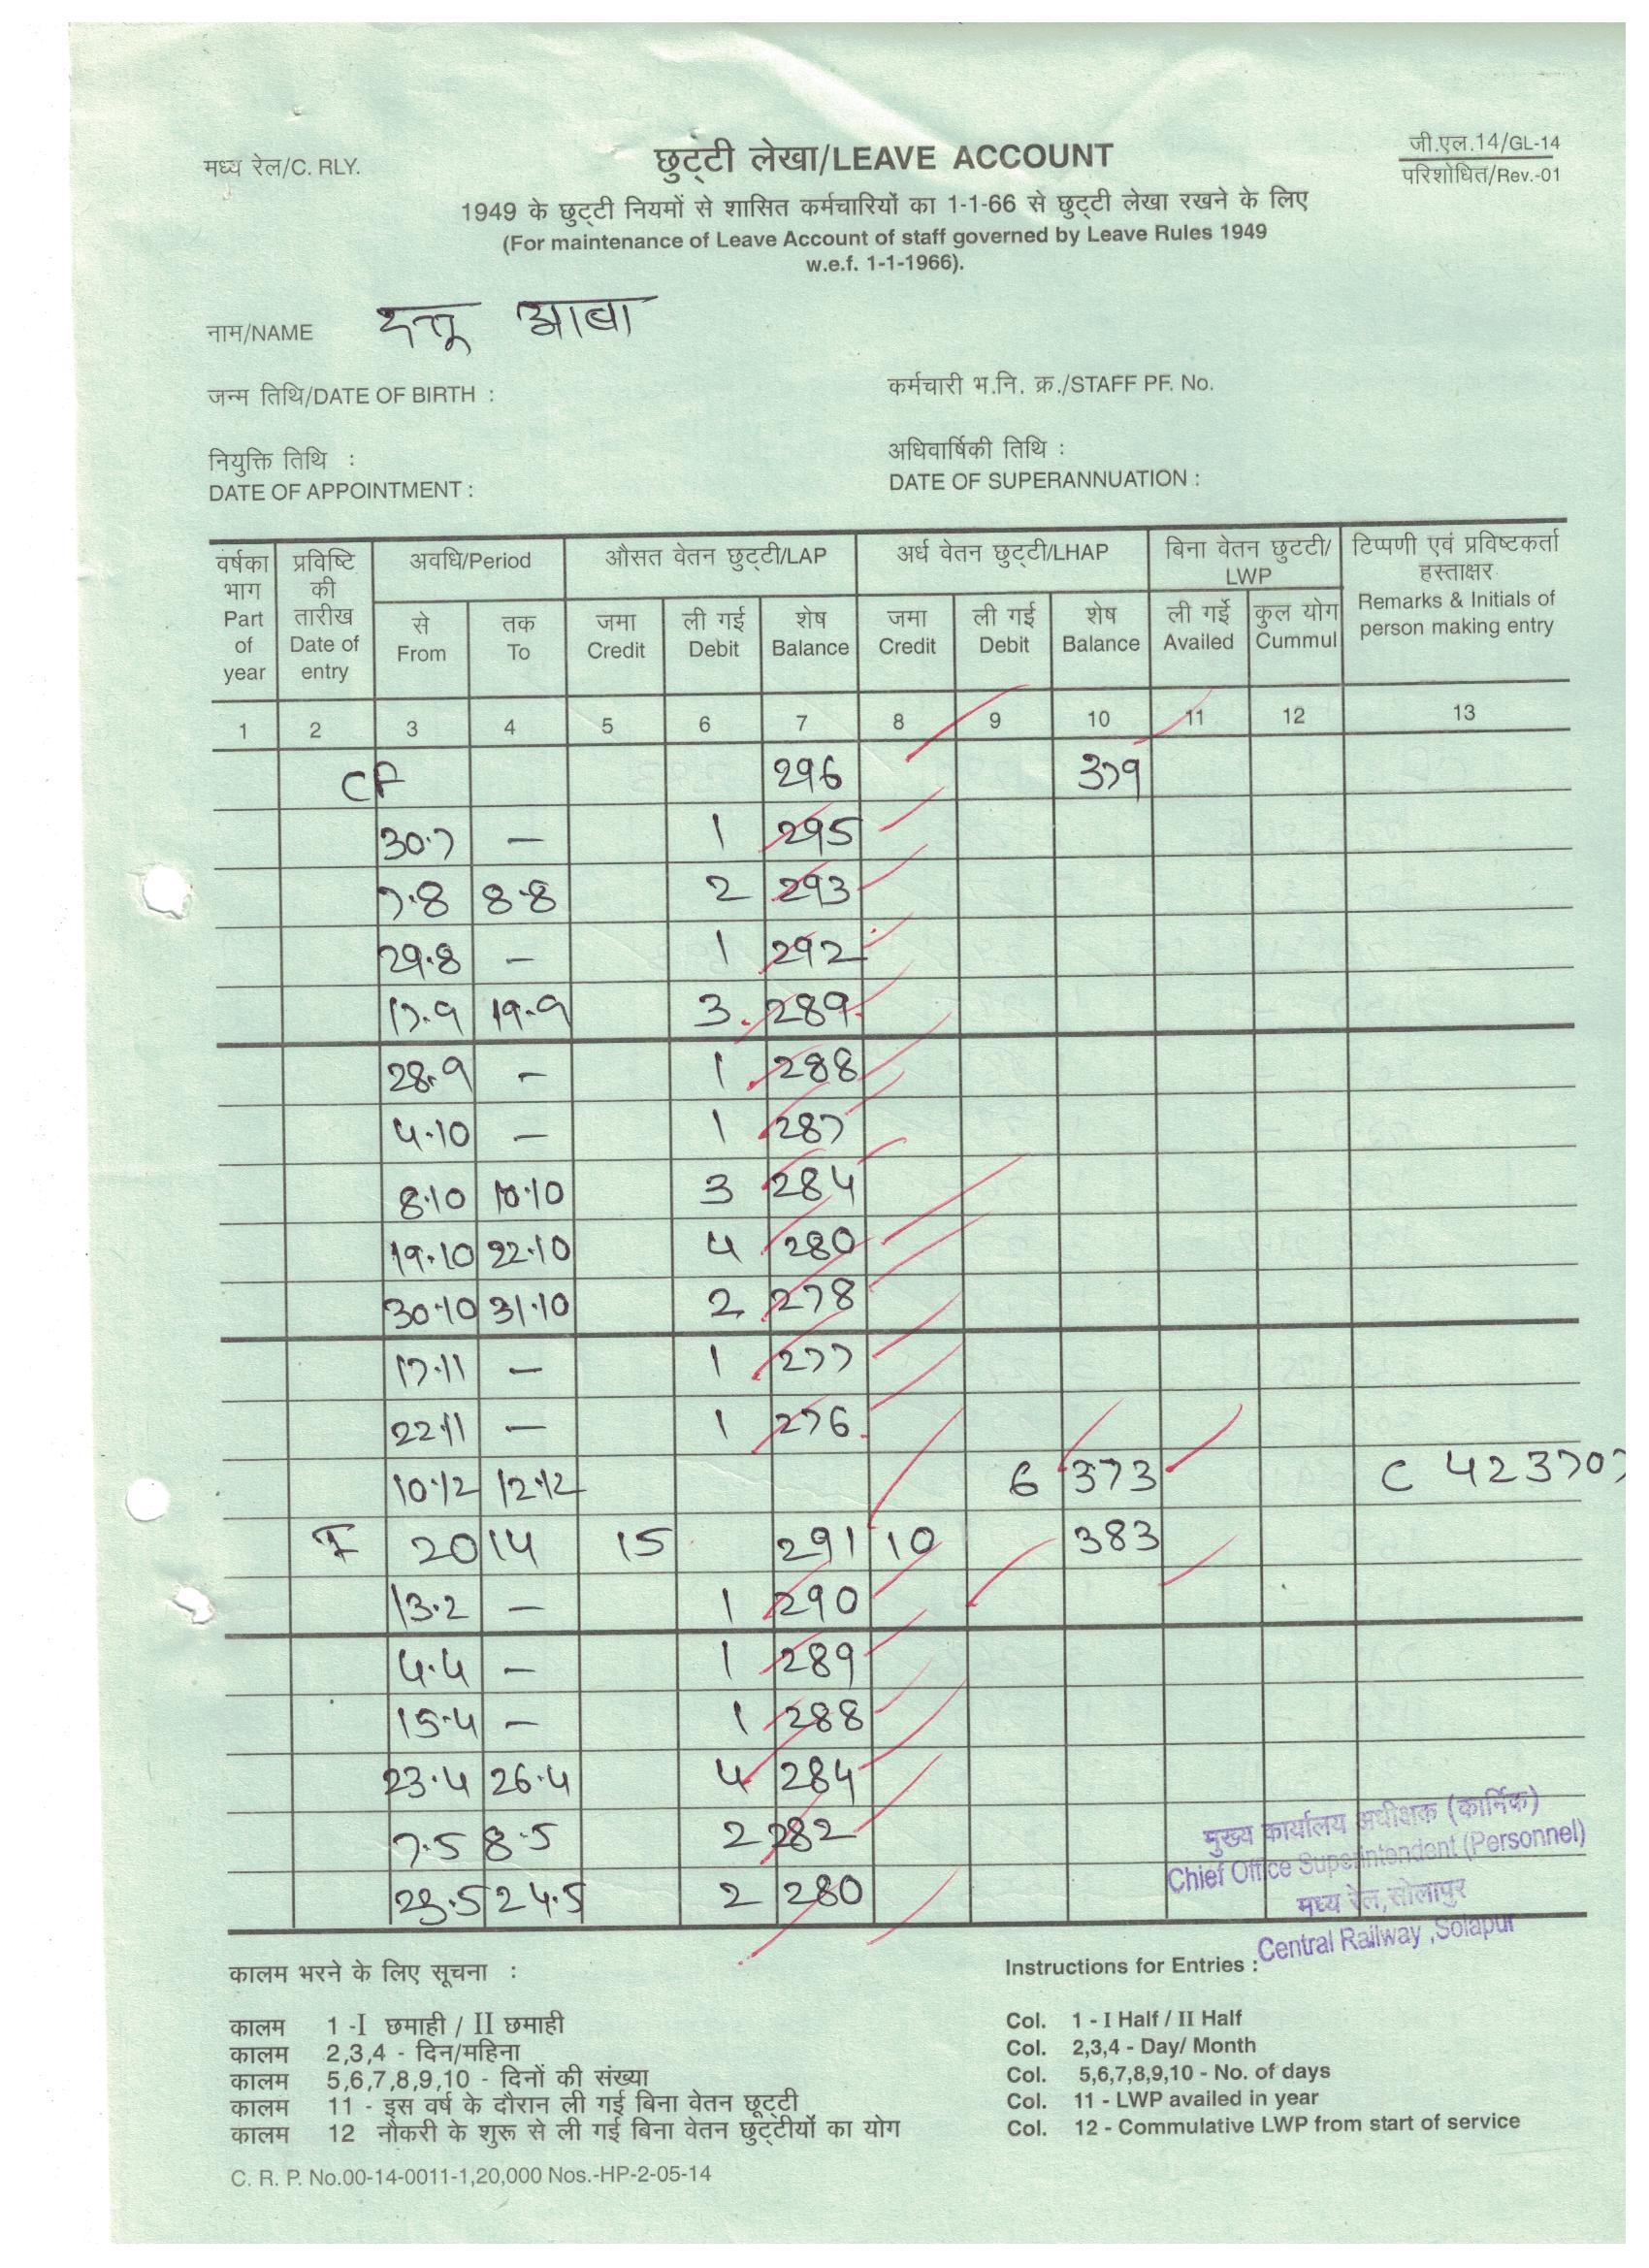 मध्य रेल/C. RLY.
छुट्टी लेखा/LEAVE ACCOUNT
जी.एल.14/GL-14
परिशोधित/Rev.-01
1949 के छुट्टी नियमों से शासित कर्मचारियों का 1-1-66 से छुट्टी लेखा रखने के लिए
(For maintenance of Leave Account of staff governed by Leave Rules 1949
w.e.f. 1-1-1966).
नाम/NAME दत्तू आबा
जन्म तिथि/DATE OF BIRTH :
कर्मचारी भ.नि. क्र./STAFF PF. No.
नियुक्ति तिथि :
DATE OF APPOINTMENT :
अधिवार्षिकी तिथि :
DATE OF SUPERANNUATION :
वर्षका भाग Part of year
प्रविष्टि की तारीख Date of entry
अवधि/Period
औसत वेतन छुट्टी/LAP
अर्ध वेतन छुट्टी/LHAP
बिना वेतन छुटटी/ LWP
टिप्पणी एवं प्रविष्टकर्ता हस्ताक्षर Remarks & Initials of person making entry
से From
तक To
जमा Credit
ली गई Debit
शेष Balance
जमा Credit
ली गई Debit
शेष Balance
ली गई Availed
कुल योग Cummul
1 2 3 4 5 6 7 8 9 10 11 12 13
CF 296 379
30.7 — 1 295
7.8 8.8 2 293
29.8 — 1 292
17.9 19.9 3 289
28.9 — 1 288
4.10 — 1 287
8.10 10.10 3 284
19.10 22.10 4 280
30.10 31.10 2 278
17.11 — 1 277
22.11 — 1 276
10.12 12.12 6 373 C 423707
I 2014 15 291 10 383
13.2 — 1 290
4.4 — 1 289
15.4 — 1 288
23.4 26.4 4 284
7.5 8.5 2 282
23.5 24.5 2 280
मुख्य कार्यालय अधीक्षक (कार्मिक)
Chief Office Superintendent (Personnel)
मध्य रेल, सोलापुर
Central Railway ,Solapur
कालम भरने के लिए सूचना :
कालम 1 -I छमाही / II छमाही
कालम 2,3,4 - दिन/महिना
कालम 5,6,7,8,9,10 - दिनों की संख्या
कालम 11 - इस वर्ष के दौरान ली गई बिना वेतन छूट्टी
कालम 12 नौकरी के शुरू से ली गई बिना वेतन छुट्टीयों का योग
Instructions for Entries :
Col. 1 - I Half / II Half
Col. 2,3,4 - Day/ Month
Col. 5,6,7,8,9,10 - No. of days
Col. 11 - LWP availed in year
Col. 12 - Commulative LWP from start of service
C. R. P. No.00-14-0011-1,20,000 Nos.-HP-2-05-14